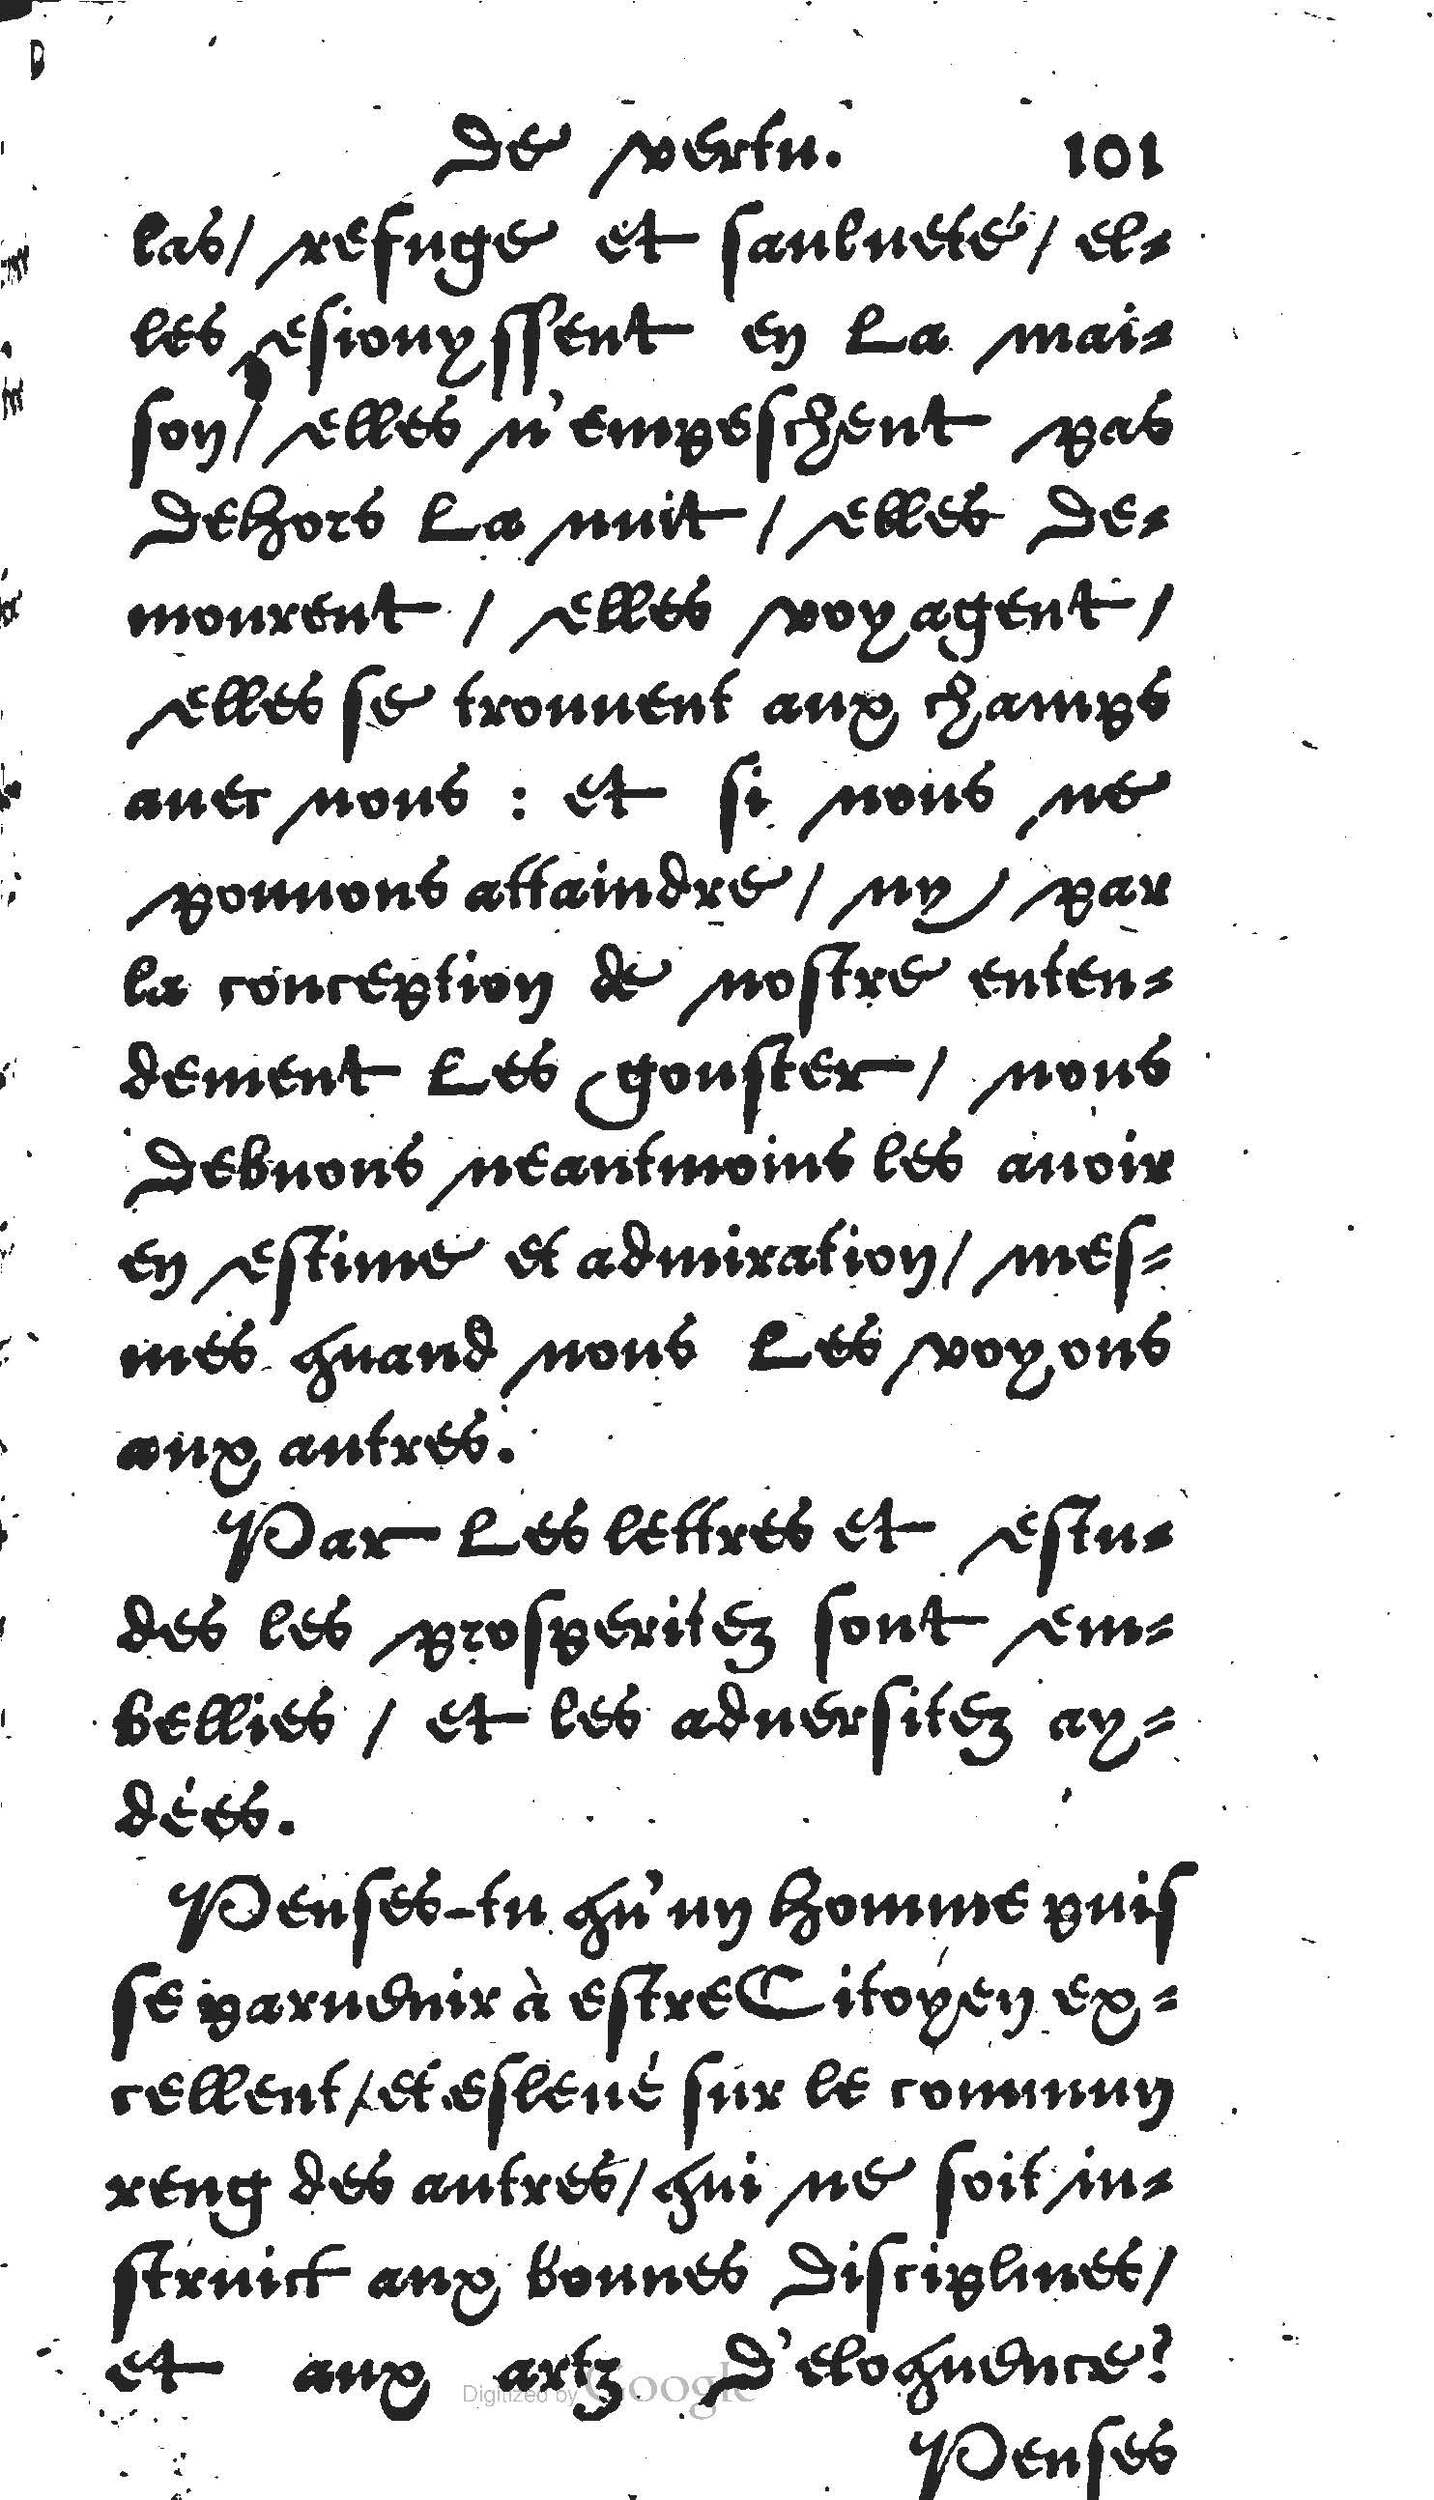 De vertu. 101
las/ refuge et saulueté/ el-
les esiouyssent en la mai-
son/ elles n'empeschent pas
dehors la nuit / elles de-
mourent / elles voyagent /
elles se trouuent aux champs
auec nous : et si nous ne
pouuons attaindre / ny par
la conception de nostre enten-
dement les gouster / nous
debuons neantmoins les auoir
en estime et admiration / mes-
mes quand nous les voyons
aux autres.
Par les lettres et estu-
des les prosperitez sont em-
bellies / et les aduersitez ay-
dées.
Penses-tu qu'un homme puis
se paruenir à estre Citoyen ex-
cellent / et esleué sur le commun
reng des autres / qui ne soit in-
struict aux bonnes disciplines /
et aux artz d'eloquence?
Digitized by Google
Penses